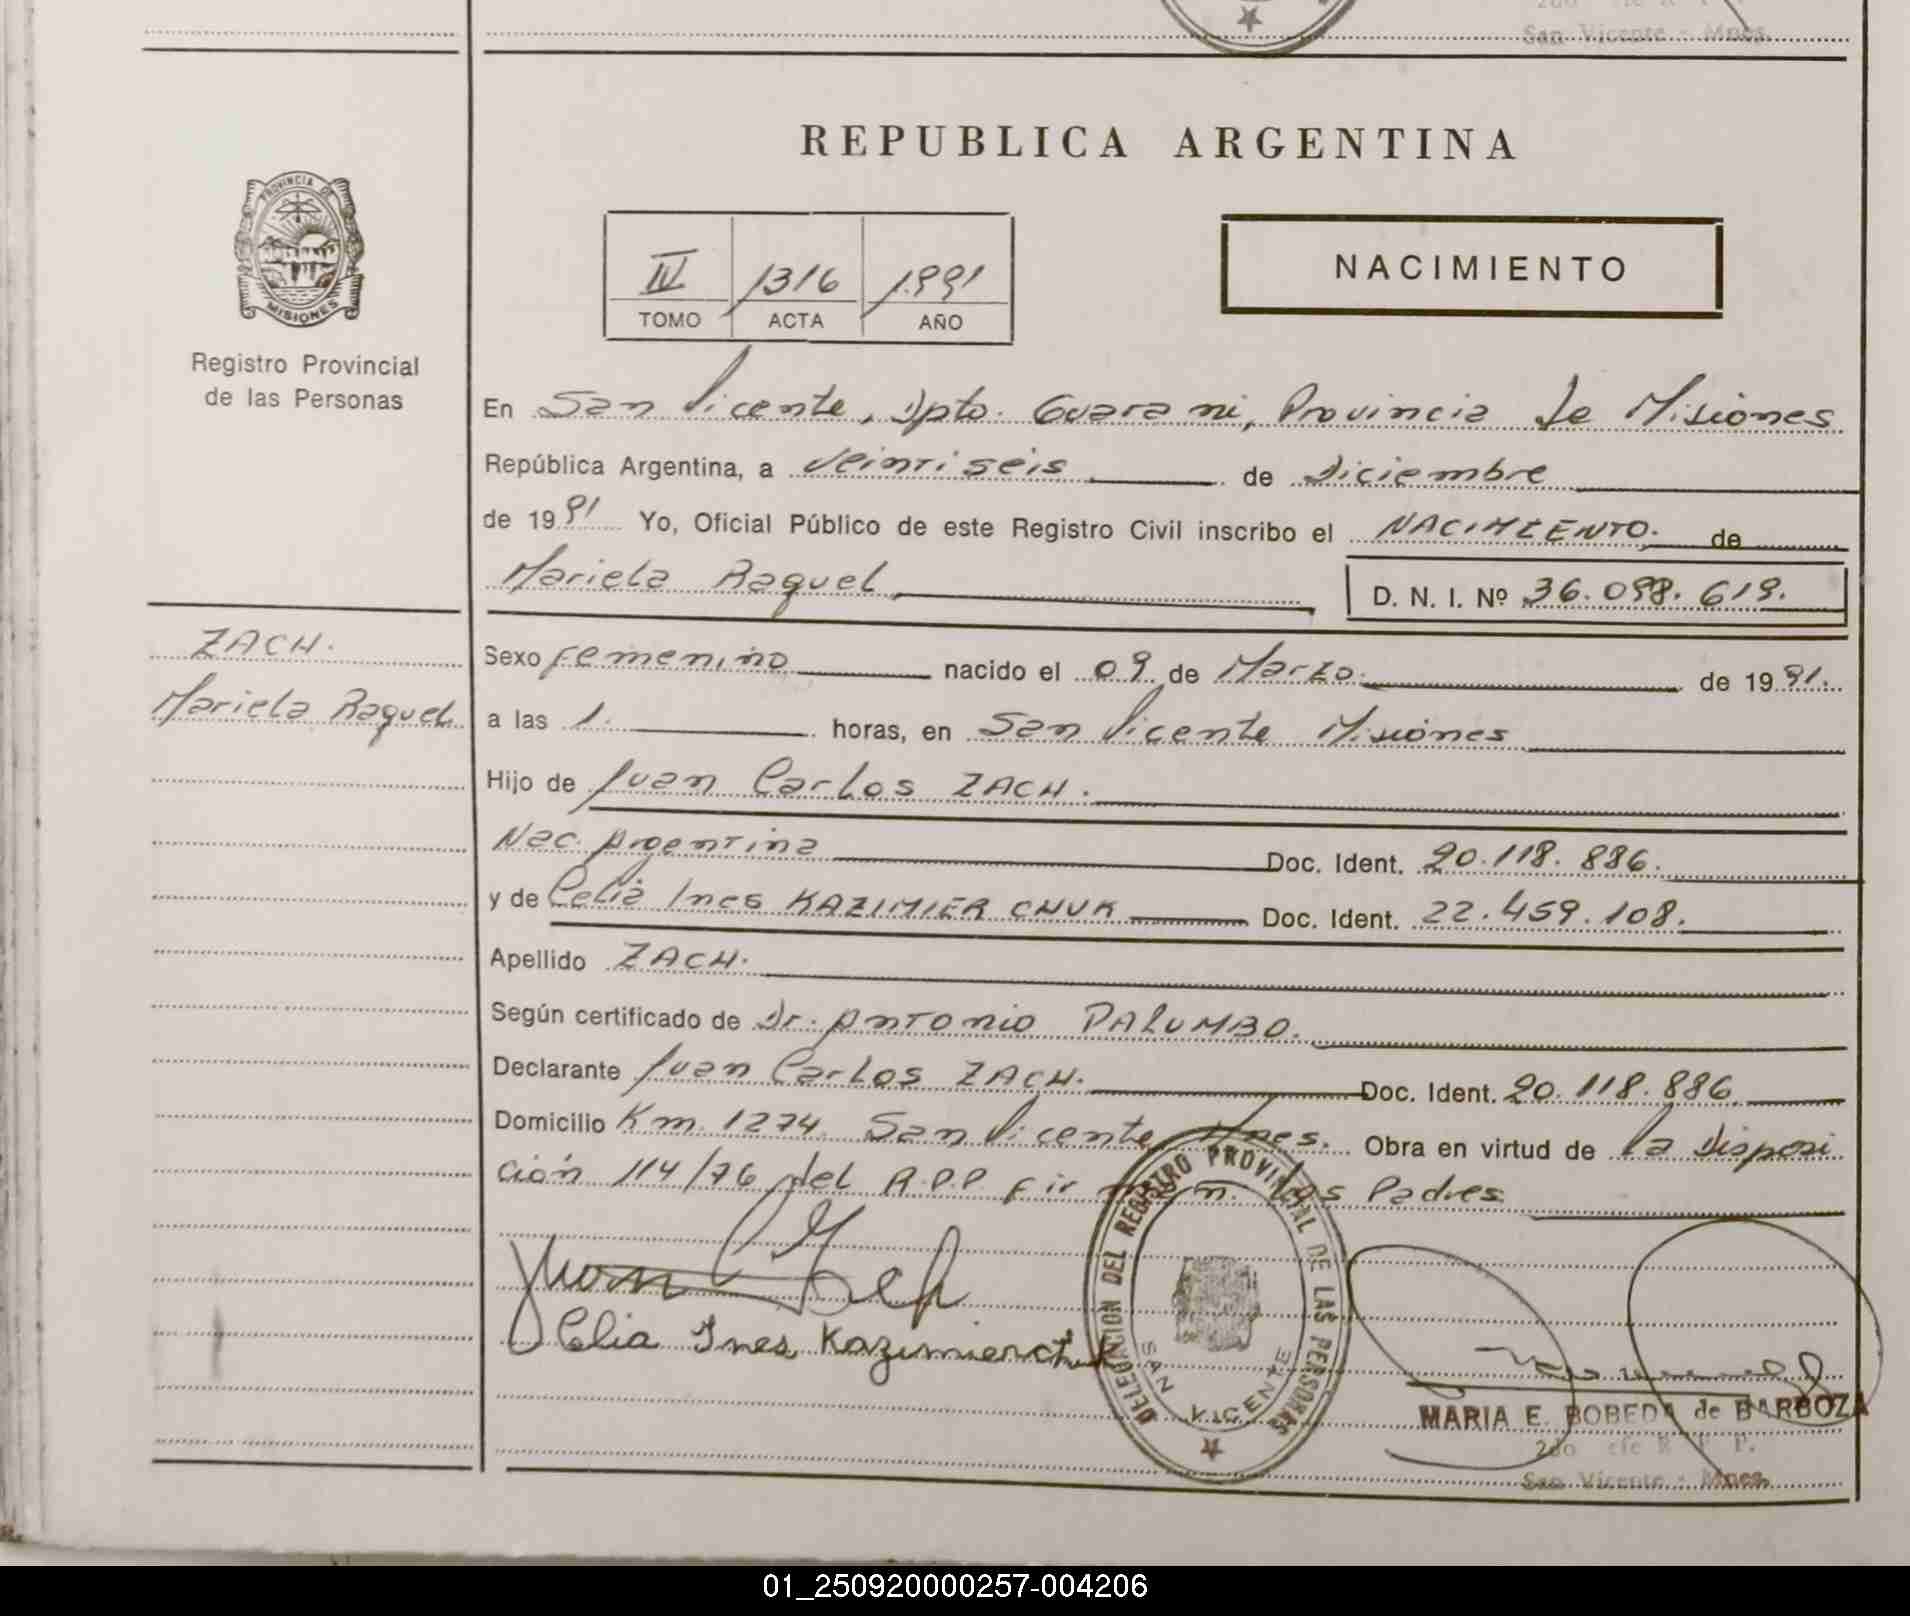 San Vicente - Mnes.
REPUBLICA ARGENTINA
PROVINCIA DE
MISIONES
Registro Provincial
de las Personas
IV 1316 1991
TOMO ACTA AÑO
NACIMIENTO
En San Vicente, Dpto. Guarani, Provincia de Misiones
República Argentina, a veintiseis de Diciembre
de 1991 Yo, Oficial Público de este Registro Civil inscribo el NACIMIENTO. de
Mariela Raquel
D. N. I. Nº 36.098.619.
ZACH.
Mariela Raquel
Sexo femenino nacido el 09 de Marzo. de 1991.
a las 1. horas, en San Vicente Misiones
Hijo de Juan Carlos ZACH.
Nac. Argentina Doc. Ident. 20.118.886.
y de Celia Ines KAZIMIERCHUK Doc. Ident. 22.459.108.
Apellido ZACH.
Según certificado de Dr. Antonio PALUMBO.
Declarante Juan Carlos ZACH. Doc. Ident. 20.118.886
Domicilio Km. 1274 San Vicente, Mnes. Obra en virtud de la Disposi
ción 114/76 del R.P.P. firman. Los Padres
Juan Zach
Celia Ines Kazimierchuk
DELEGACION DEL REGISTRO PROVINCIAL DE LAS PERSONAS
SAN VICENTE
MARIA E. BOBEDA de BARBOZA
San Vicente - Mnes.
01_250920000257-004206